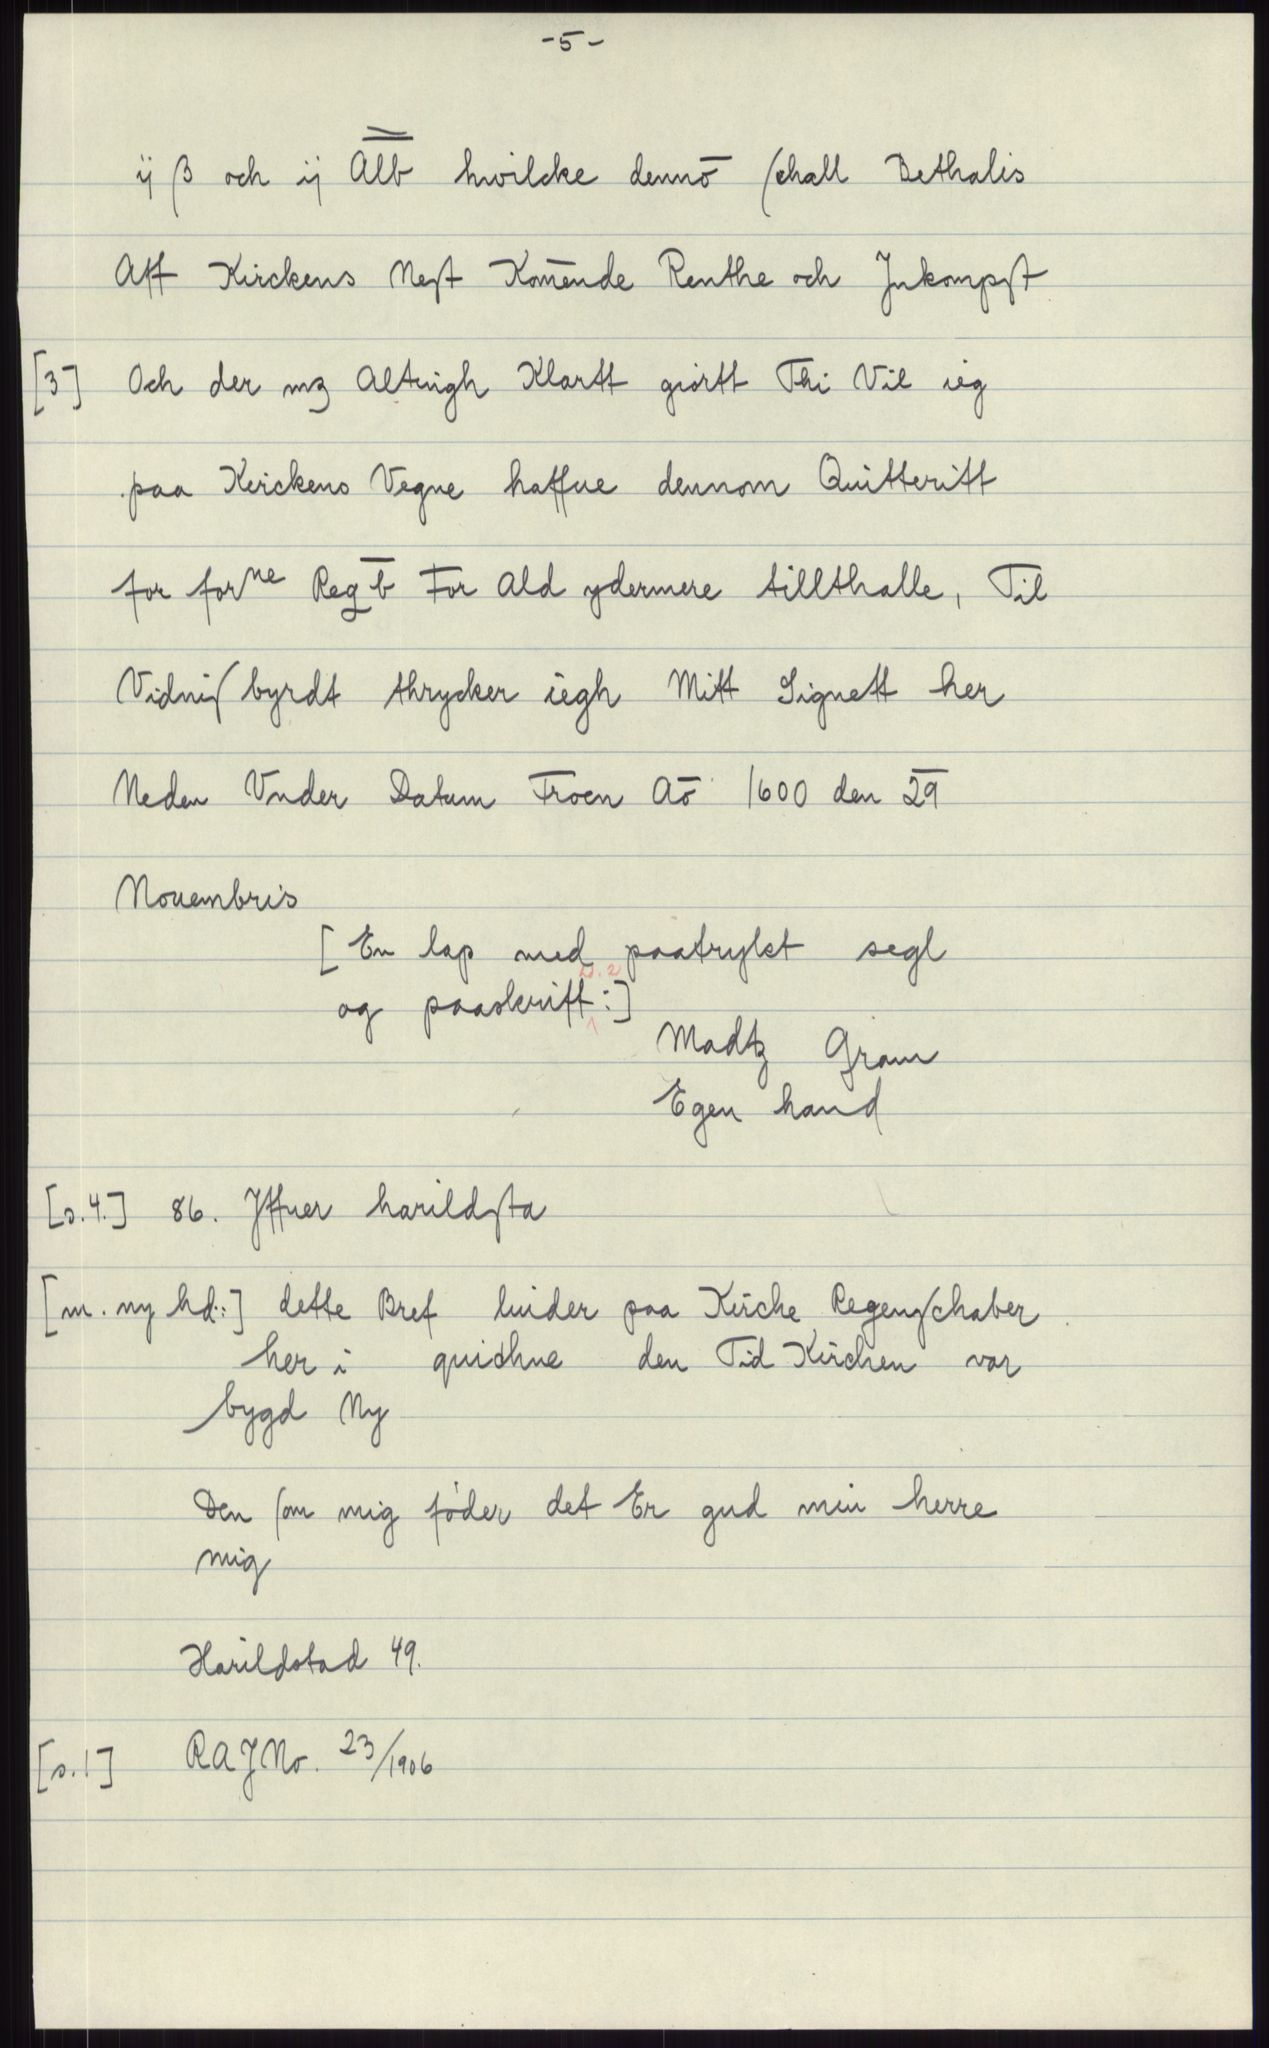 -5-
ij ß och ij Alb hwilcke dennō schall Bethalis
Aff Kirckens Nest Komēnde Renthe och Jnkompst
[3] Och der mȝ Altingh Klartt giørtt Thi Vil ieg
paa Kirckens Vegne haffue dennom Quitteritt
for forⁿᵉ Reg̅b For Ald ydermere tillthalle, Til
Vidnisbyrdt thrycker iegh Mitt Signett her
Neden Vnder Datum Froen Aō 1600 den 29
Nouembris
[En lap med paatrykt segl
hd. 2
og paaskrift:]
Madtz Gram
Egen hand
[s.4.] 86. Jffuer harildsta
[m. ny hd.:] dette Bref luider paa Kirche Regenschaber
her i quichne den Tid Kirchen var
bygd Ny
Den som mig føder det Er gud min herre
mig
Harildstad 49.
[s.1] RA JNo. 23/1906